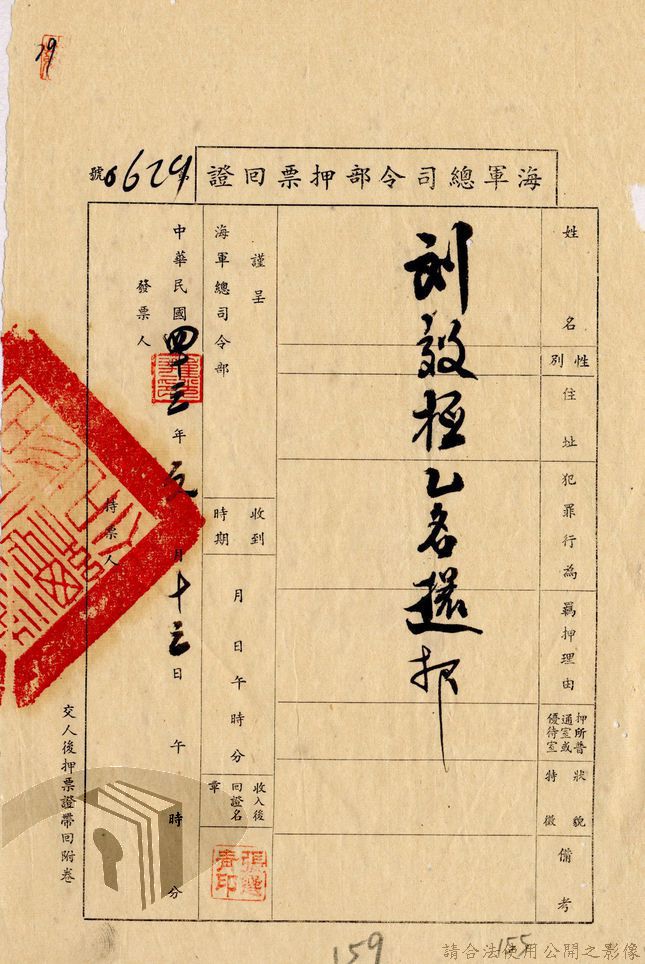 29
海軍總司令部押票回證
6629號
姓名
性別
住址
犯罪行為
羈押理由
押所普通室或優待室
狀貌特徵
備考
劉毅極乙名還押
謹呈
海軍總司令部
收到時期
月日午時分
收入後回證名章
中華民國四十三年元月十三日午時分
發票人
持票人
交人後押票證帶回附卷
159
155
請合法使用公開之影像